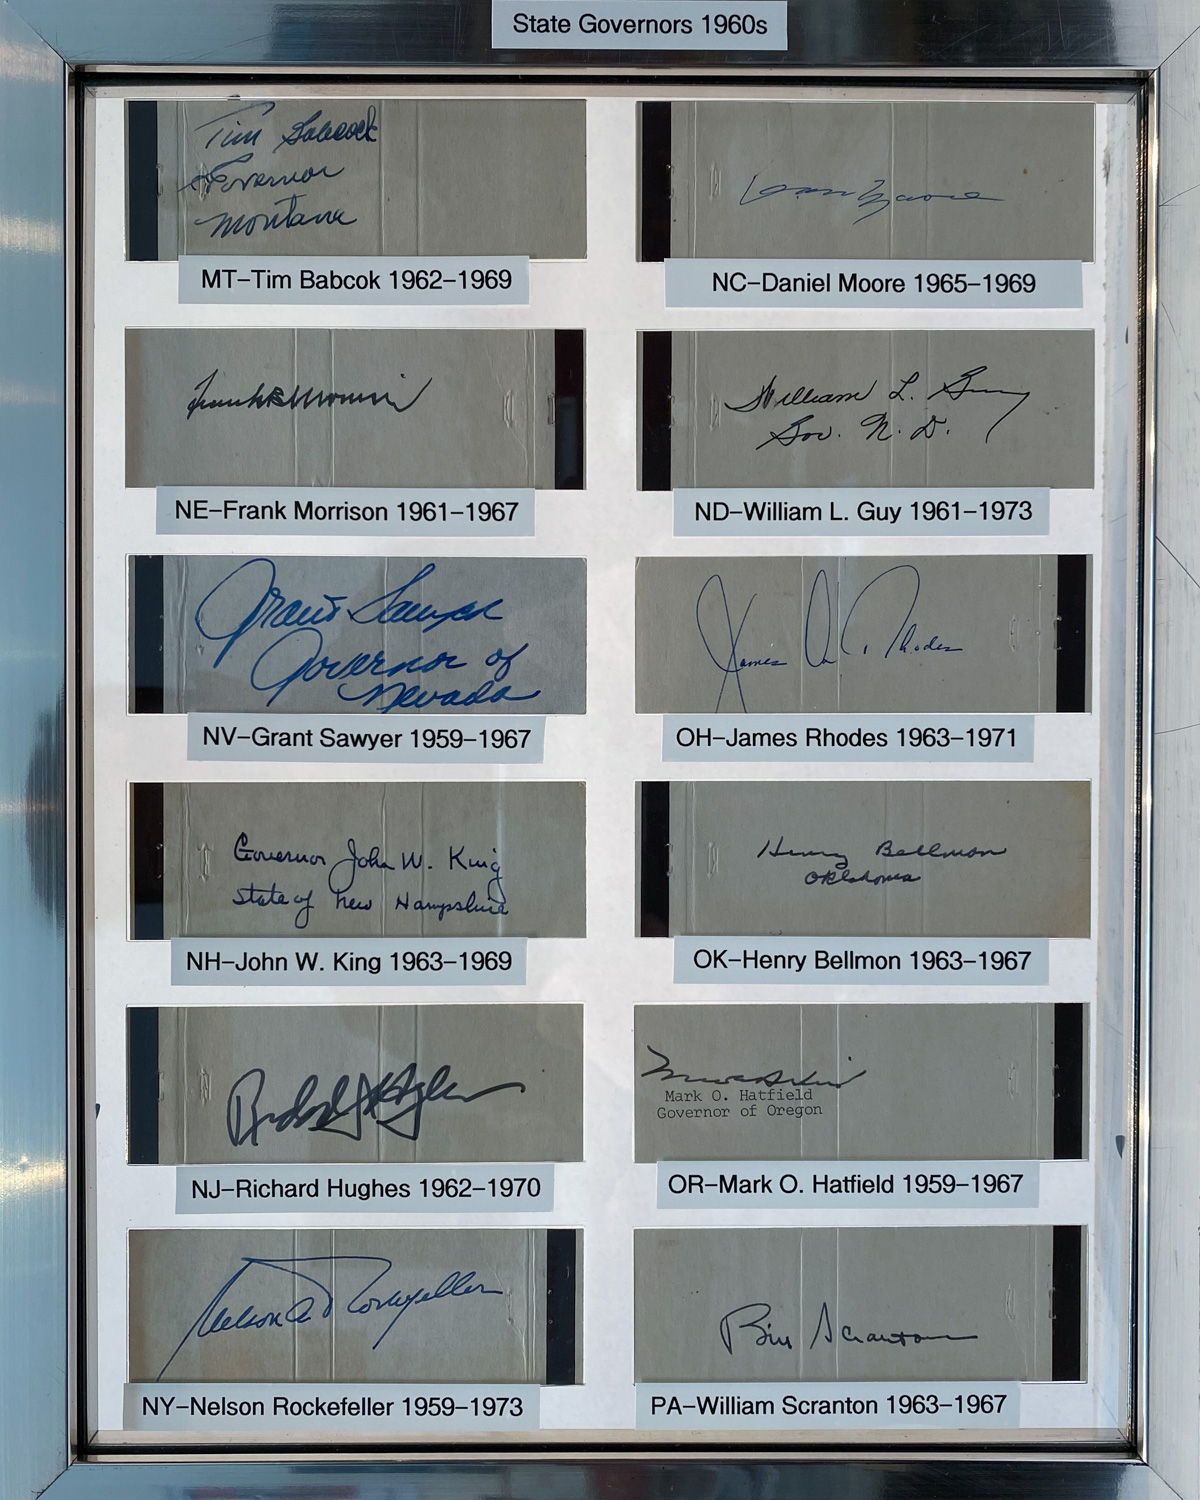 State Governors 1960s
Tim Babcock
Governor
Montana
MT–Tim Babcok 1962–1969
Dan Moore
NC–Daniel Moore 1965–1969
Frank B Morrison
NE–Frank Morrison 1961–1967
William L. Guy
Gov. N. D.
ND–William L. Guy 1961–1973
Grant Sawyer
Governor of
Nevada
NV–Grant Sawyer 1959–1967
James A. Rhodes
OH–James Rhodes 1963–1971
Governor John W. King
State of New Hampshire
NH–John W. King 1963–1969
Henry Bellmon
Oklahoma
OK–Henry Bellmon 1963–1967
Richard J Hughes
NJ–Richard Hughes 1962–1970
Mark O. Hatfield
Governor of Oregon
OR–Mark O. Hatfield 1959–1967
Nelson A Rockefeller
NY–Nelson Rockefeller 1959–1973
Bill Scranton
PA–William Scranton 1963–1967